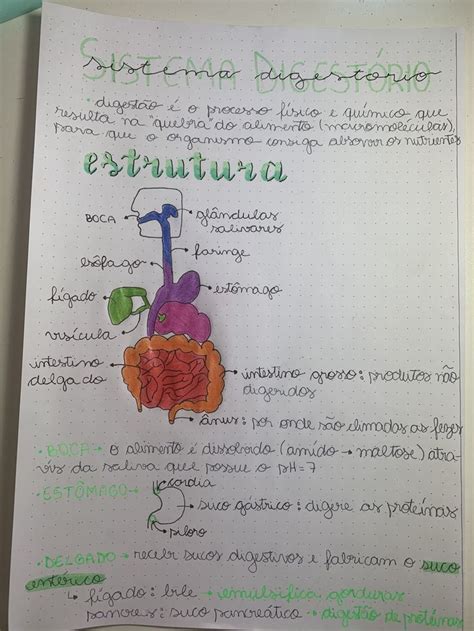 SISTEMA DIGESTÓRIO
sistema digestório
• digestão é o processo físico e químico que
resulta na "quebra" do alimento (macromoléculas),
para que o organismo consiga absorver os nutrientes
estrutura
BOCA
glândulas
salivares
faringe
esôfago
estômago
fígado
visícula
intestino
delgado
intestino grosso: produtos não
digeridos
ânus: por onde são elimadas as fezes
• BOCA → o alimento é dissolvido (amido → maltose) atra-
vés da saliva que possue o pH=7
• ESTÔMAGO →
cárdia
suco gástrico: digere as proteínas
piloro
• DELGADO → recebe sucos digestivos e fabricam o suco
entérico
↳ fígado: bile → emulsifica gorduras
pancreas: suco pancreático → digestão de proteínas